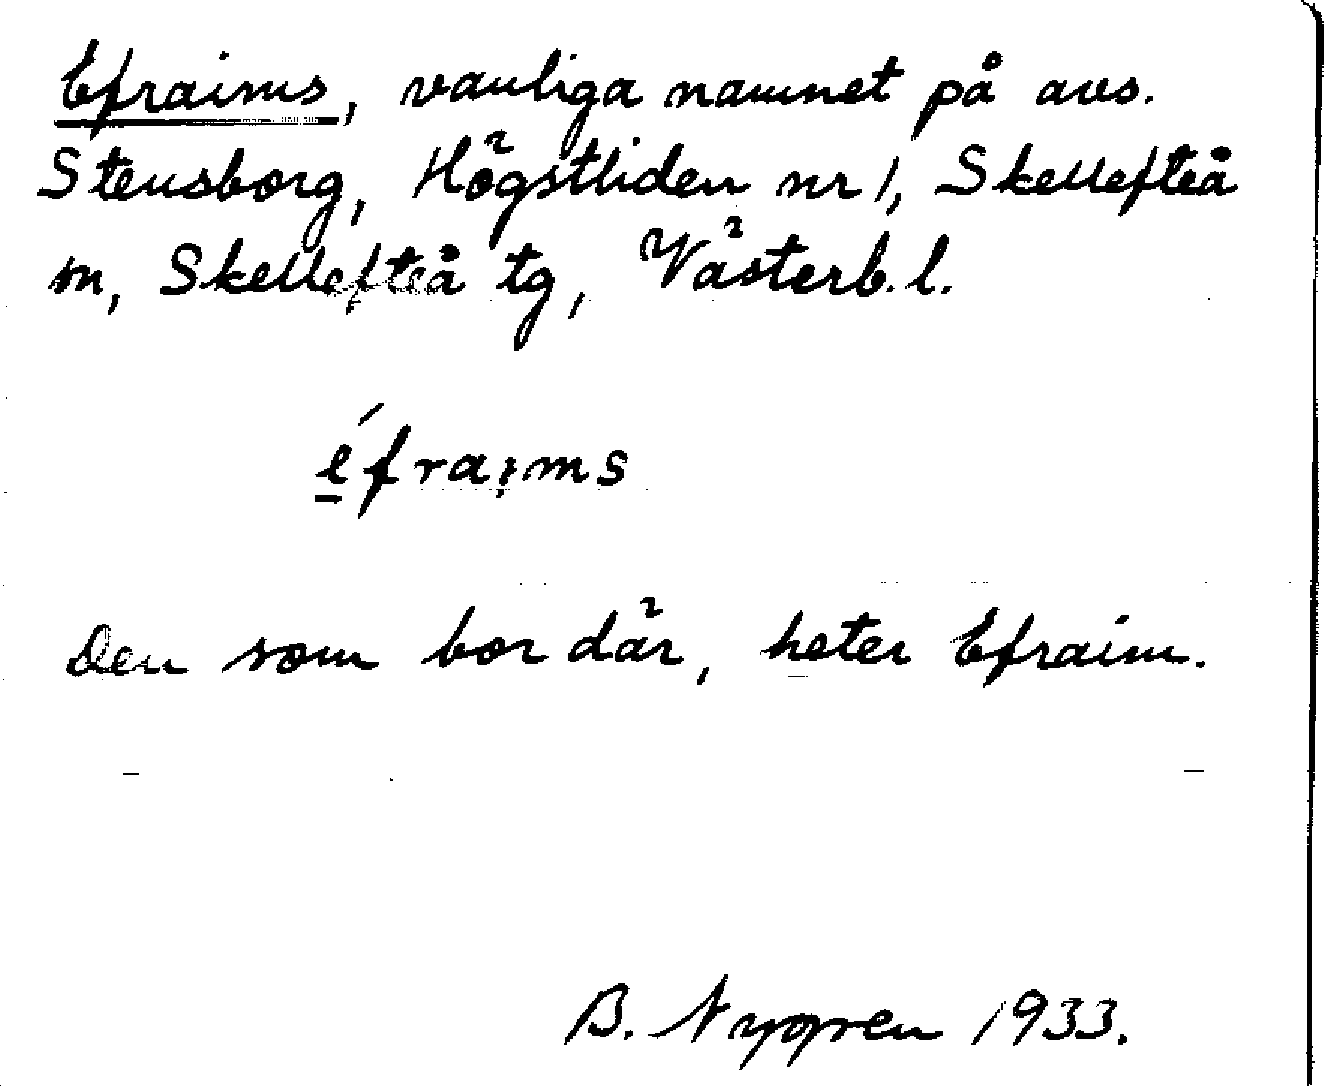 Efraims, vanliga namnet på avs.
Stensborg, Högstliden nr 1, Skellefteå
m, Skellefteå tg, Västerb. l.
é̱frai̯ms
Den som bor där, heter Efraim.
B. Nygren 1933.